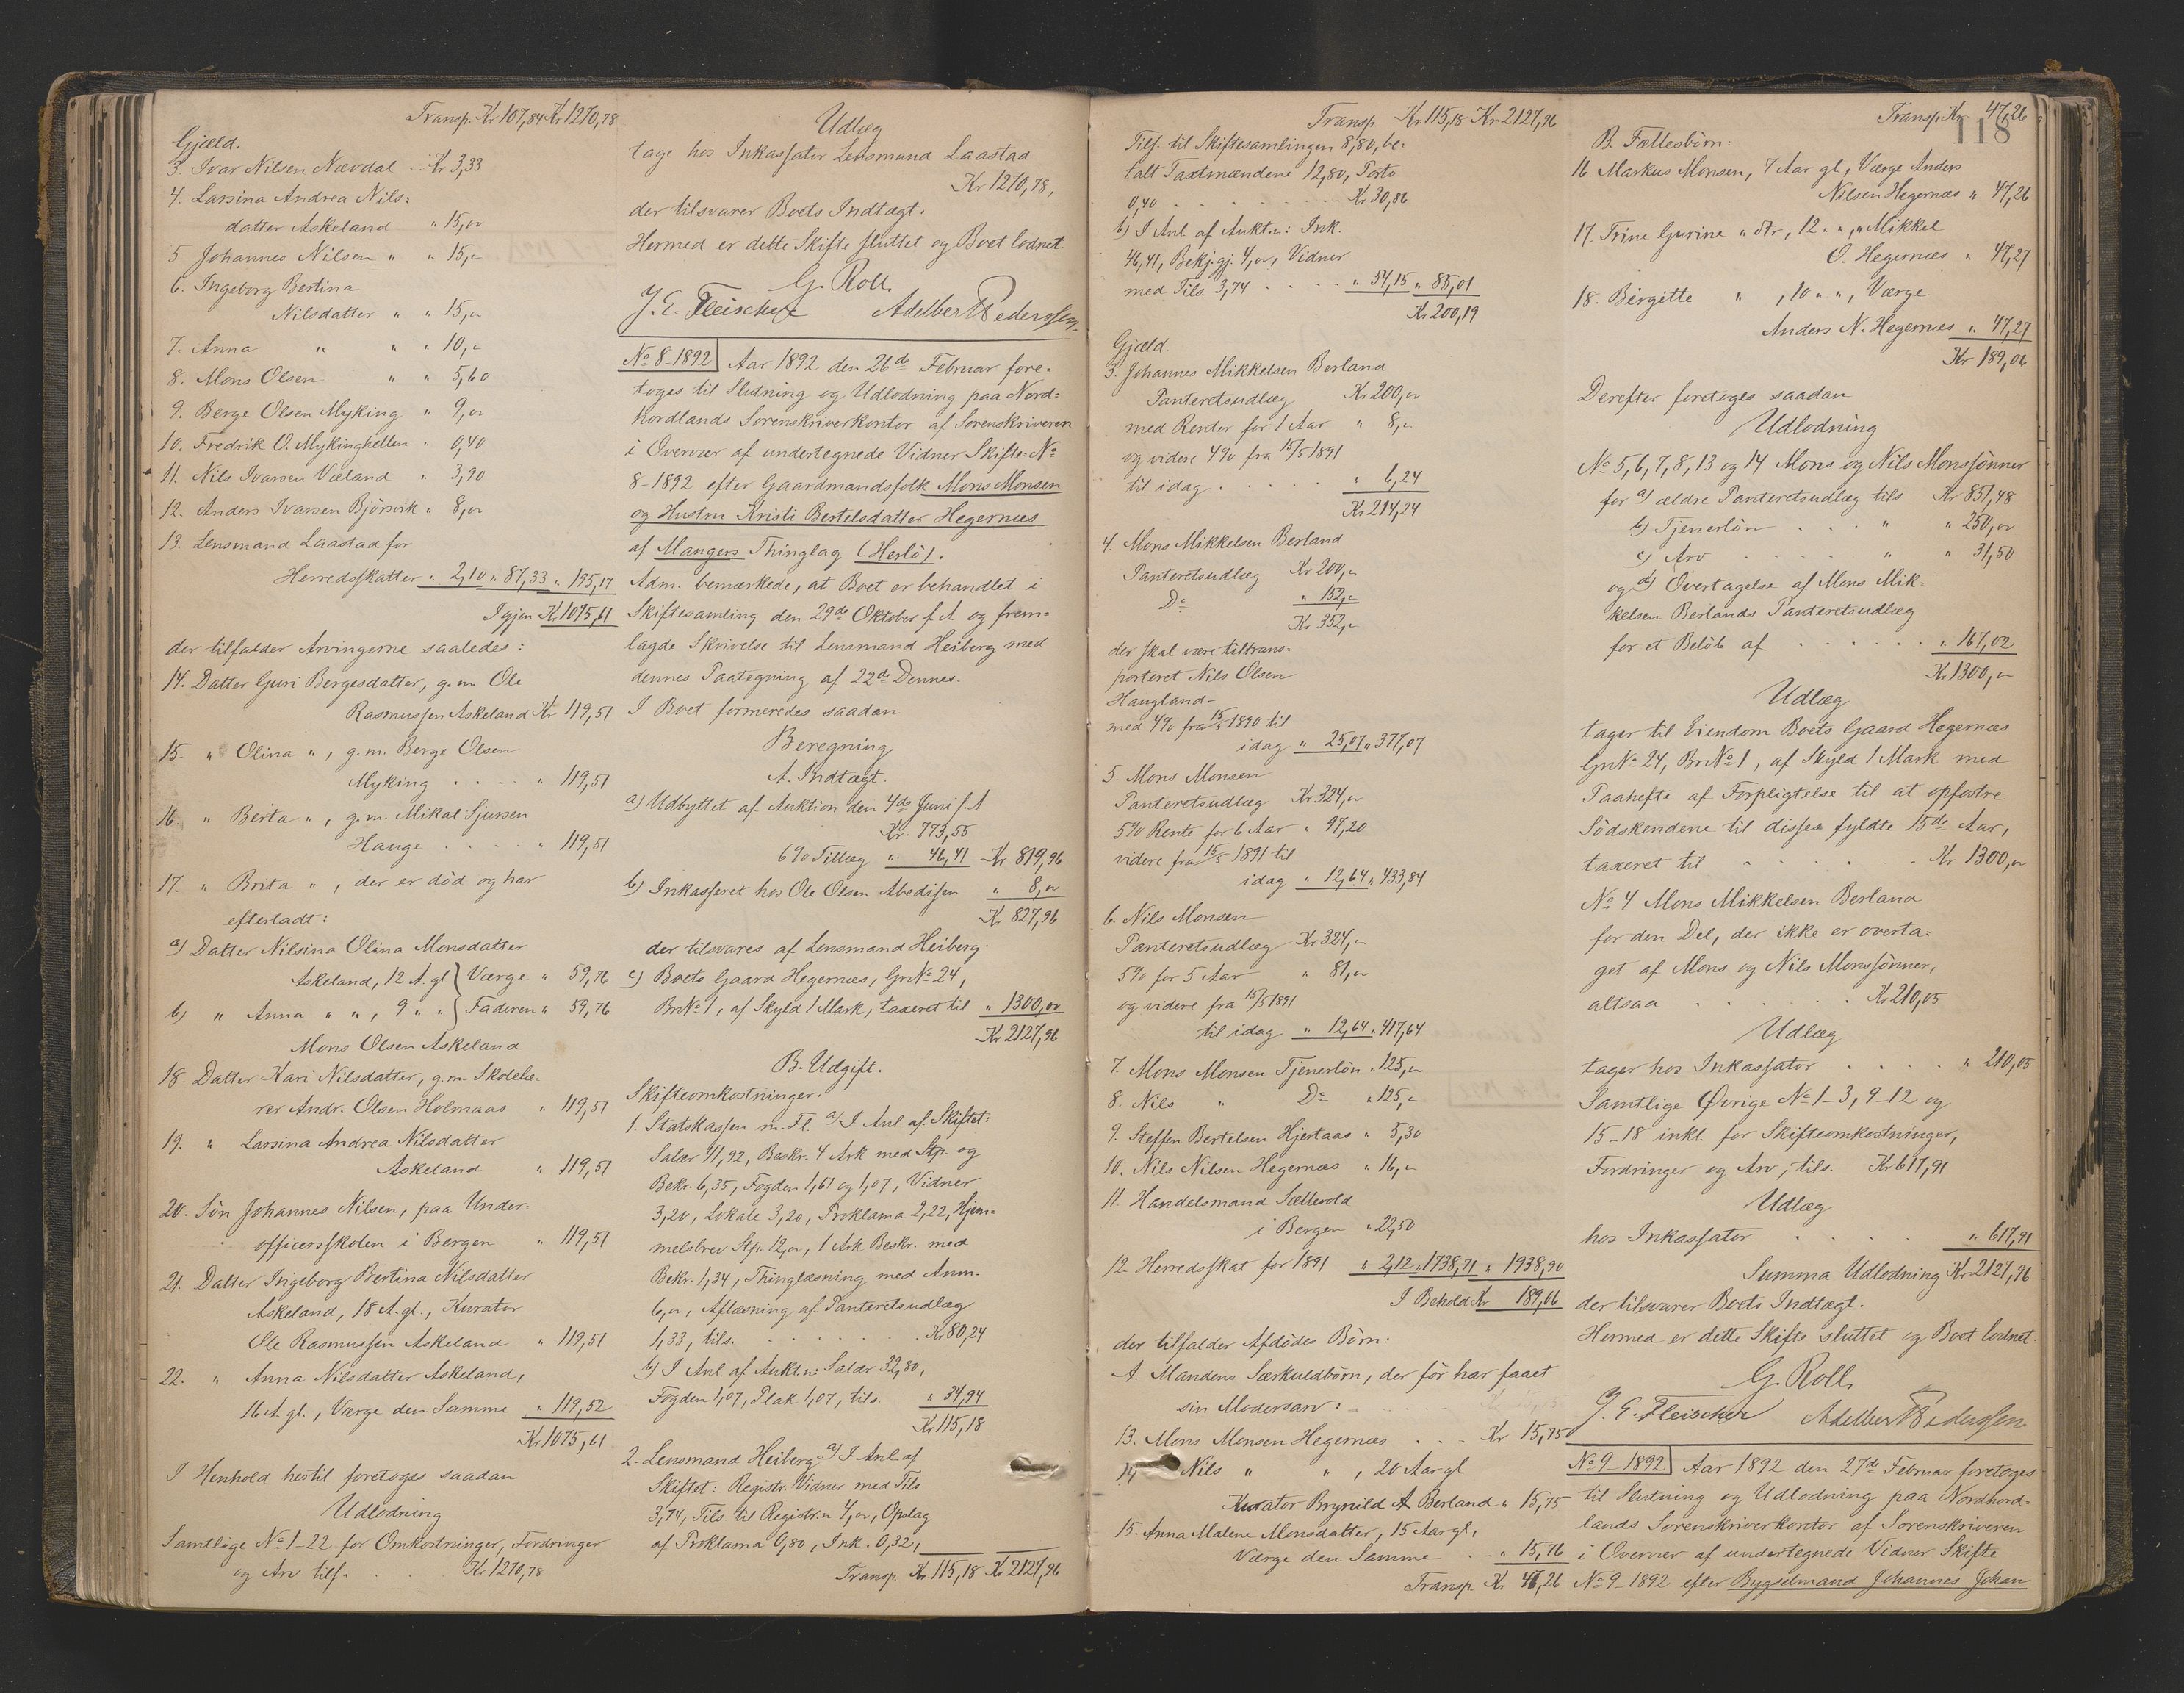 Transp. Kr 107,84 Kr 1270,78
Gjæld.
3. Ivar Nilsen Nævdal . . Kr 3,33
4. Larsina Andrea Nils-
datter Askeland " 15,00
5 Johannes Nilsen " " 15,"
6. Ingeborg Bertina
Nilsdatter " " 15,00
7. Anna " " " 10,"
8. Mons Olsen " " 5,60
9. Berge Olsen Myking " 9,00
10. Fredrik O. Mykinghellen " 0,40
11. Nils Ivarsen Væland " 3,90
12. Anders Ivarsen Bjørsvik " 8,00
13. Lensmand Laastad for
Herredsskatter " 2,10 " 87,33 " 195,17
Igjen Kr 1075,61
der tilfalder Arvingerne saaledes:
14. Datter Guri Bergesdatter, g. m. Ole
Rasmussen Askeland Kr 119,51
15. " Olina ", g. m. Berge Olsen
Myking . . . . " 119,51
16 " Berta ", g. m. Mikal Sjursen
Hauge . . . . " 119,51
17. " Brita ", der er död og har
efterladt:
a) Datter Nilsina Olina Monsdatter
Askeland, 12 A. gl } Værge " 59,76
b) " Anna " ", 9 " " } Faderen " 59,76
Mons Olsen Askeland
18. Datter Kari Nilsdatter, g. m. Skolelæ-
rer Andr. Olsen Holmaas " 119,51
19. " Larsina Andrea Nilsdatter
Askeland " 119,51
20. Sön Johannes Nilsen, paa Under-
officersskolen i Bergen " 119,51
21. Datter Ingeborg Bertina Nilsdatter
Askeland, 18 A. gl., Kurator
Ole Rasmussen Askeland " 119,51
22. " Anna Nilsdatter Askeland,
16 A. gl., Værge den Samme " 119,52
Kr 1075,61
I Henhold hertil foretoges saadan
Udlodning
Samtlige No 1-22 for Omkostninger, Fordringer
og Arv tils. . . Kr 1270,78
Udlæg
tage hos Inkassator Lensmand Laastad
Kr 1270,78,
der tilsvarer Boets Indtægt.
Hermed er dette Skifte sluttet og Boet lodnet.
G. Roll.
J. E. Fleischer Adelbert Pederssen.
No 8-1892 Aar 1892 den 26de Februar fore-
toges til Slutning og Udlodning paa Nord-
hordlands Sorenskriverkontor af Sorenskriveren
i Overvær af undertegnede Vidner Skifte No
8-1892 efter Gaardmandsfolk Mons Monsen
og Hustru Kristi Bertelsdatter Hegernæs
af Mangers Thinglag (Herlö).
Adm. bemærkede, at Boet er behandlet i
Skiftesamling den 29de Oktober f. A og frem-
lagde Skrivelse til Lensmand Heiberg med
dennes Paategning af 22de Dennes.
I Boet formeredes saadan
Beregning
A. Indtægt.
a) Udbyttet af Auktion den 4de Juni f. A
Kr. 773,55
6% Tillæg " 46,41 Kr 819,96
b) Inkasseret hos Ole Olsen Absdisen " 8,00
Kr 827,96
der tilsvares af Lensmand Heiberg.
c) Boets Gaard Hegernæs, Gr No 24,
Br No 1, af Skyld 1 Mark, taxeret til " 1300,00
Kr 2127,96
B. Udgift.
Skifteomkostninger.
1. Statskassen m. Fl. a) I Anl. af Skiftet:
Salær 41,92, Beskr. 4 Ark med Stp. og
Bekr. 6,35, Fogden 1,61 og 1,07, Vidner
3,20, Lokale 3,20, Proklama 2,22, Hjem-
melsbrev Stp. 12,00, 1 Ark Beskr. med
Bekr. 1,34, Thinglæsning med Anm.
6,00, Aflæsning af Panteretsudlæg
1,33, tils. . . . . . . Kr 80,24
b) I Anl. af Auktn: Salær 32,80,
Fogden 1,07, Plak. 1,07, tils. " 34,94
Kr 115,18
2. Lensmand Heiberg a) I Anl af
Skiftet: Registr. Vidner med Tils
3,74, Tils. til Registr.n 4,00, Opslag
af Proklama 0,80, Ink. 0,32,
Transp. Kr 115,18 Kr 2127,96
Transp Kr 115,18 Kr 2127,96
Tils. til Skiftesamlingen 8,80, be-
talt Taxtmændene 12,80, Porto
0,40 . . . . . . Kr 30,86
b) I Anl af Auktn: Ink.
46,41, Bekj.gj. 4,00, Vidner
med Tils. 3,74 . . . . " 54,15 " 85,01
Kr 200,19
Gjæld.
3. Johannes Mikkelsen Berland
Panteretsudlæg Kr 200,00
med Renter for 1 Aar " 8,"
og videre 4% fra 15/5 1891
til idag . . . . . " 6,24
Kr 214,24
4. Mons Mikkelsen Berland
Panteretsudlæg Kr 200,"
Do " 152,"
Kr 352,"
der skal være tiltrans-
porteret Nils Olsen
Haugland-
med 4% fra 15/5 1890 til
idag " 25,07 " 377,07
5. Mons Monsen
Panteretsudlæg Kr 324,00
5% Rente for 6 Aar " 97,20
videre fra 15/5 1891 til
idag " 12,64 " 433,84
6. Nils Monsen
Panteretsudlæg Kr 324,"
5% for 5 Aar " 81,00
og videre fra 15/5 1891
til idag " 12,64 " 417,64
7. Mons Monsen Tjenerlön " 125,"
8. Nils " Do " 125,"
9. Steffen Bertelsen Hjertaas " 5,30
10. Nils Nilsen Hegernæs " 16,"
11. Handelsmand Sællevold
i Bergen " 22,50
12. Herredsskat for 1891 " 2,12 " 1738,71 " 1938,90
I Behold Kr 189,06
der tilfalder Afdødes Börn:
A. Mandens Særkuldbörn, der för har faaet
sin Modersarv:
13. Mons Monsen Hegernæs . . . Kr 15,75
14 Nils " " , 20 Aar gl
Kurator Brynild A Berland " 15,75
15. Anna Malene Monsdatter, 15 Aar gl,
Værge den Samme . . " 15,76
Transp. Kr 47,26
Transp. Kr 47,26
118
B. Fællesbörn:
16. Markus Monsen, 7 Aar gl, Værge Anders
Nilsen Hegernæs " 47,26
17. Trine Gurine " dtr, 12 " ", " Mikkel
O. Hegernæs " 47,27
18. Birgitte " , 10 " ", Værge
Anders N. Hegernæs " 47,27
Kr 189,06
Derefter foretoges saadan
Udlodning
No 5, 6, 7, 8, 13 og 14 Mons og Nils Monssönner
for a) ældre Panteretsudlæg tils Kr 851,48
b) Tjenerlön . . . " " 250,00
c) Arv . . . . " " 31,50
og d) Overtagelse af Mons Mik-
kelsen Berlands Panteretsudlæg
for et Belöb af . . . . . . " 167,02
Kr 1300,"
Udlæg
tager til Eiendom Boets Gaard Hegernæs
Gr No 24, Br No 1, af Skyld 1 Mark med
Paahefte af Forpligtelse til at opfostre
Södskendene til disses fyldte 15de Aar,
taxeret til . . . . . . Kr 1300,00
No 4 Mons Mikkelsen Berland
for den Del, der ikke er overta-
get af Mons og Nils Monssönner,
altsaa . . . . . . Kr 210,05
Udlæg
tager hos Inkassator . . . . " 210,05
Samtlige Övrige No 1-3, 9-12 og
15-18 inkl. for Skifteomkostninger,
Fordringer og Arv, tils. Kr 617,91
Udlæg
hos Inkassator . . . . . " 617,91
Summa Udlodning Kr 2127,96
der tilsvarer Boets Indtægt.
Hermed er dette Skifte sluttet og Boet lodnet.
G. Roll.
J. E. Fleischer Adelbert Pederssen
No 9-1892 Aar 1892 den 27de Februar foretoges
til Slutning og Udlodning paa Nordhord-
lands Sorenskriverkontor af Sorenskriveren
i Overvær af undertegnede Vidner Skifte
No 9-1892 efter Bygselmand Johannes Johan